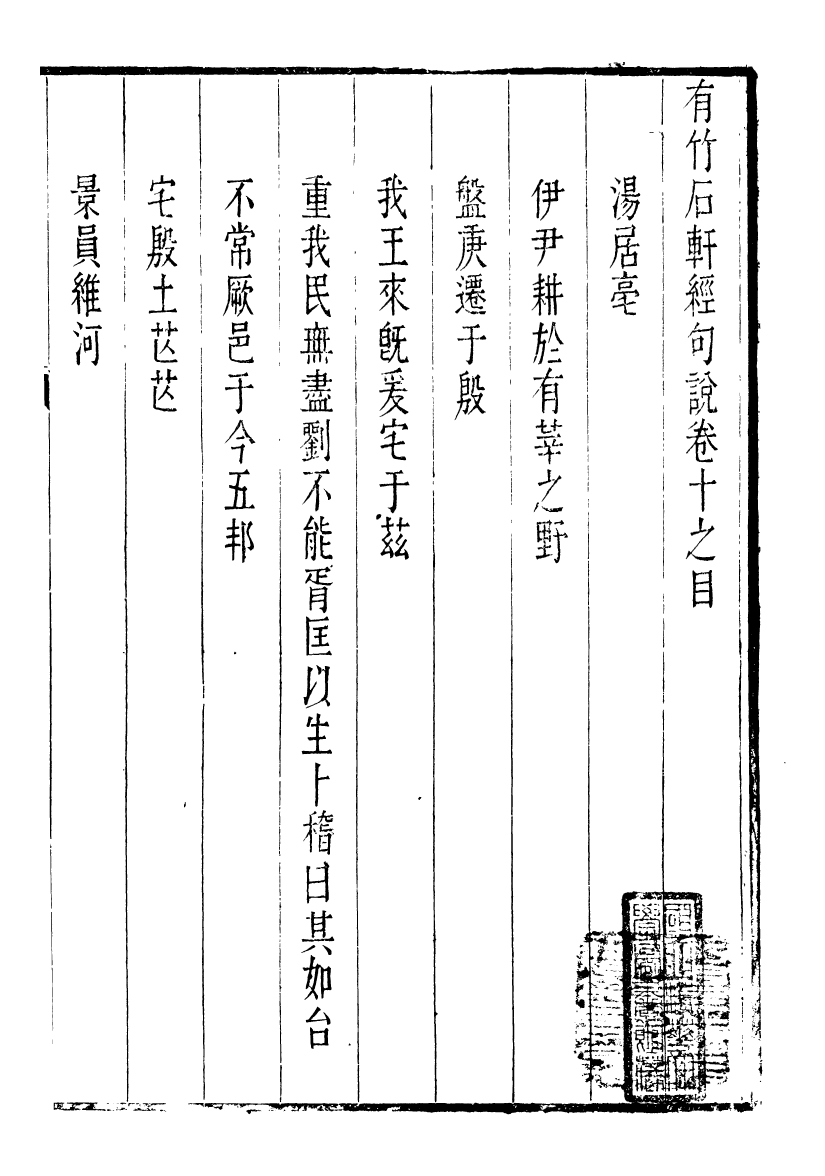 有竹石軒經句說卷十之目
湯居亳
伊尹耕於有莘之野
盤庚遷于殷
我王來旣爰宅于茲
重我民無盡劉不能胥匡以生卜稽曰其如台
不常厥邑于今五邦
宅殷土芒芒
景員維河